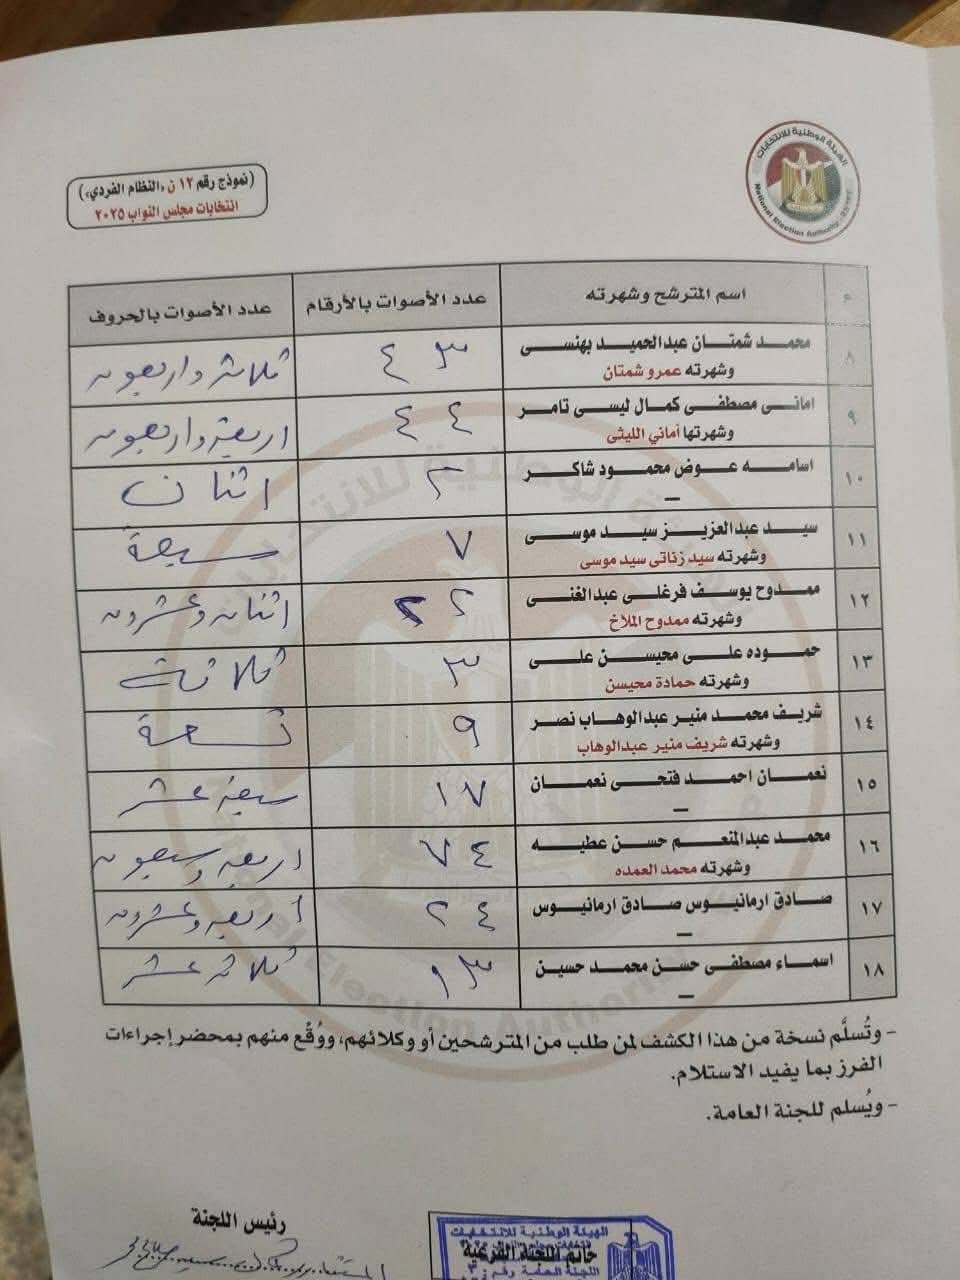 الهيئة الوطنية للانتخابات
National Election Authority
(نموذج رقم ١٢ ن «النظام الفردي»)
انتخابات مجلس النواب ٢٠٢٥
م اسم المترشح وشهرته عدد الأصوات بالأرقام عدد الأصوات بالحروف
٨ محمد شمتان عبدالحميد بهنسى ٤٣ ثلاثة واربعون
وشهرته عمرو شمتان
٩ امانى مصطفى كمال ليسى تامر ٤٤ اربعة واربعون
وشهرتها أماني الليثى
١٠ اسامه عوض محمود شاكر ٢ اثنان
–
١١ سيد عبدالعزيز سيد موسى ٧ سبعة
وشهرته سيد زناتى سيد موسى
١٢ ممدوح يوسف فرغلى عبدالغنى ٢٢ اثنان وعشرون
وشهرته ممدوح الملاخ
١٣ حموده على محيسن على ٣ ثلاثة
وشهرته حمادة محيسن
١٤ شريف محمد منير عبدالوهاب نصر ٩ تسعة
وشهرته شريف منير عبدالوهاب
١٥ نعمان احمد فتحى نعمان ١٧ سبعة عشر
–
١٦ محمد عبدالمنعم حسن عطيه ٧٤ اربعة وسبعون
وشهرته محمد العمده
١٧ صادق ارمانيوس صادق ارمانيوس ٢٤ اربعة وعشرون
–
١٨ اسماء مصطفى حسن محمد حسين ١٣ ثلاثة عشر
–
- وتُسلَّم نسخة من هذا الكشف لمن طلب من المترشحين أو وكلائهم، ووُقِّع منهم بمحضر إجراءات
الفرز بما يفيد الاستلام.
- ويُسلم للجنة العامة.
رئيس اللجنة
الهيئة الوطنية للانتخابات
خاتم اللجنة الفرعية
اللجنة العامة رقم